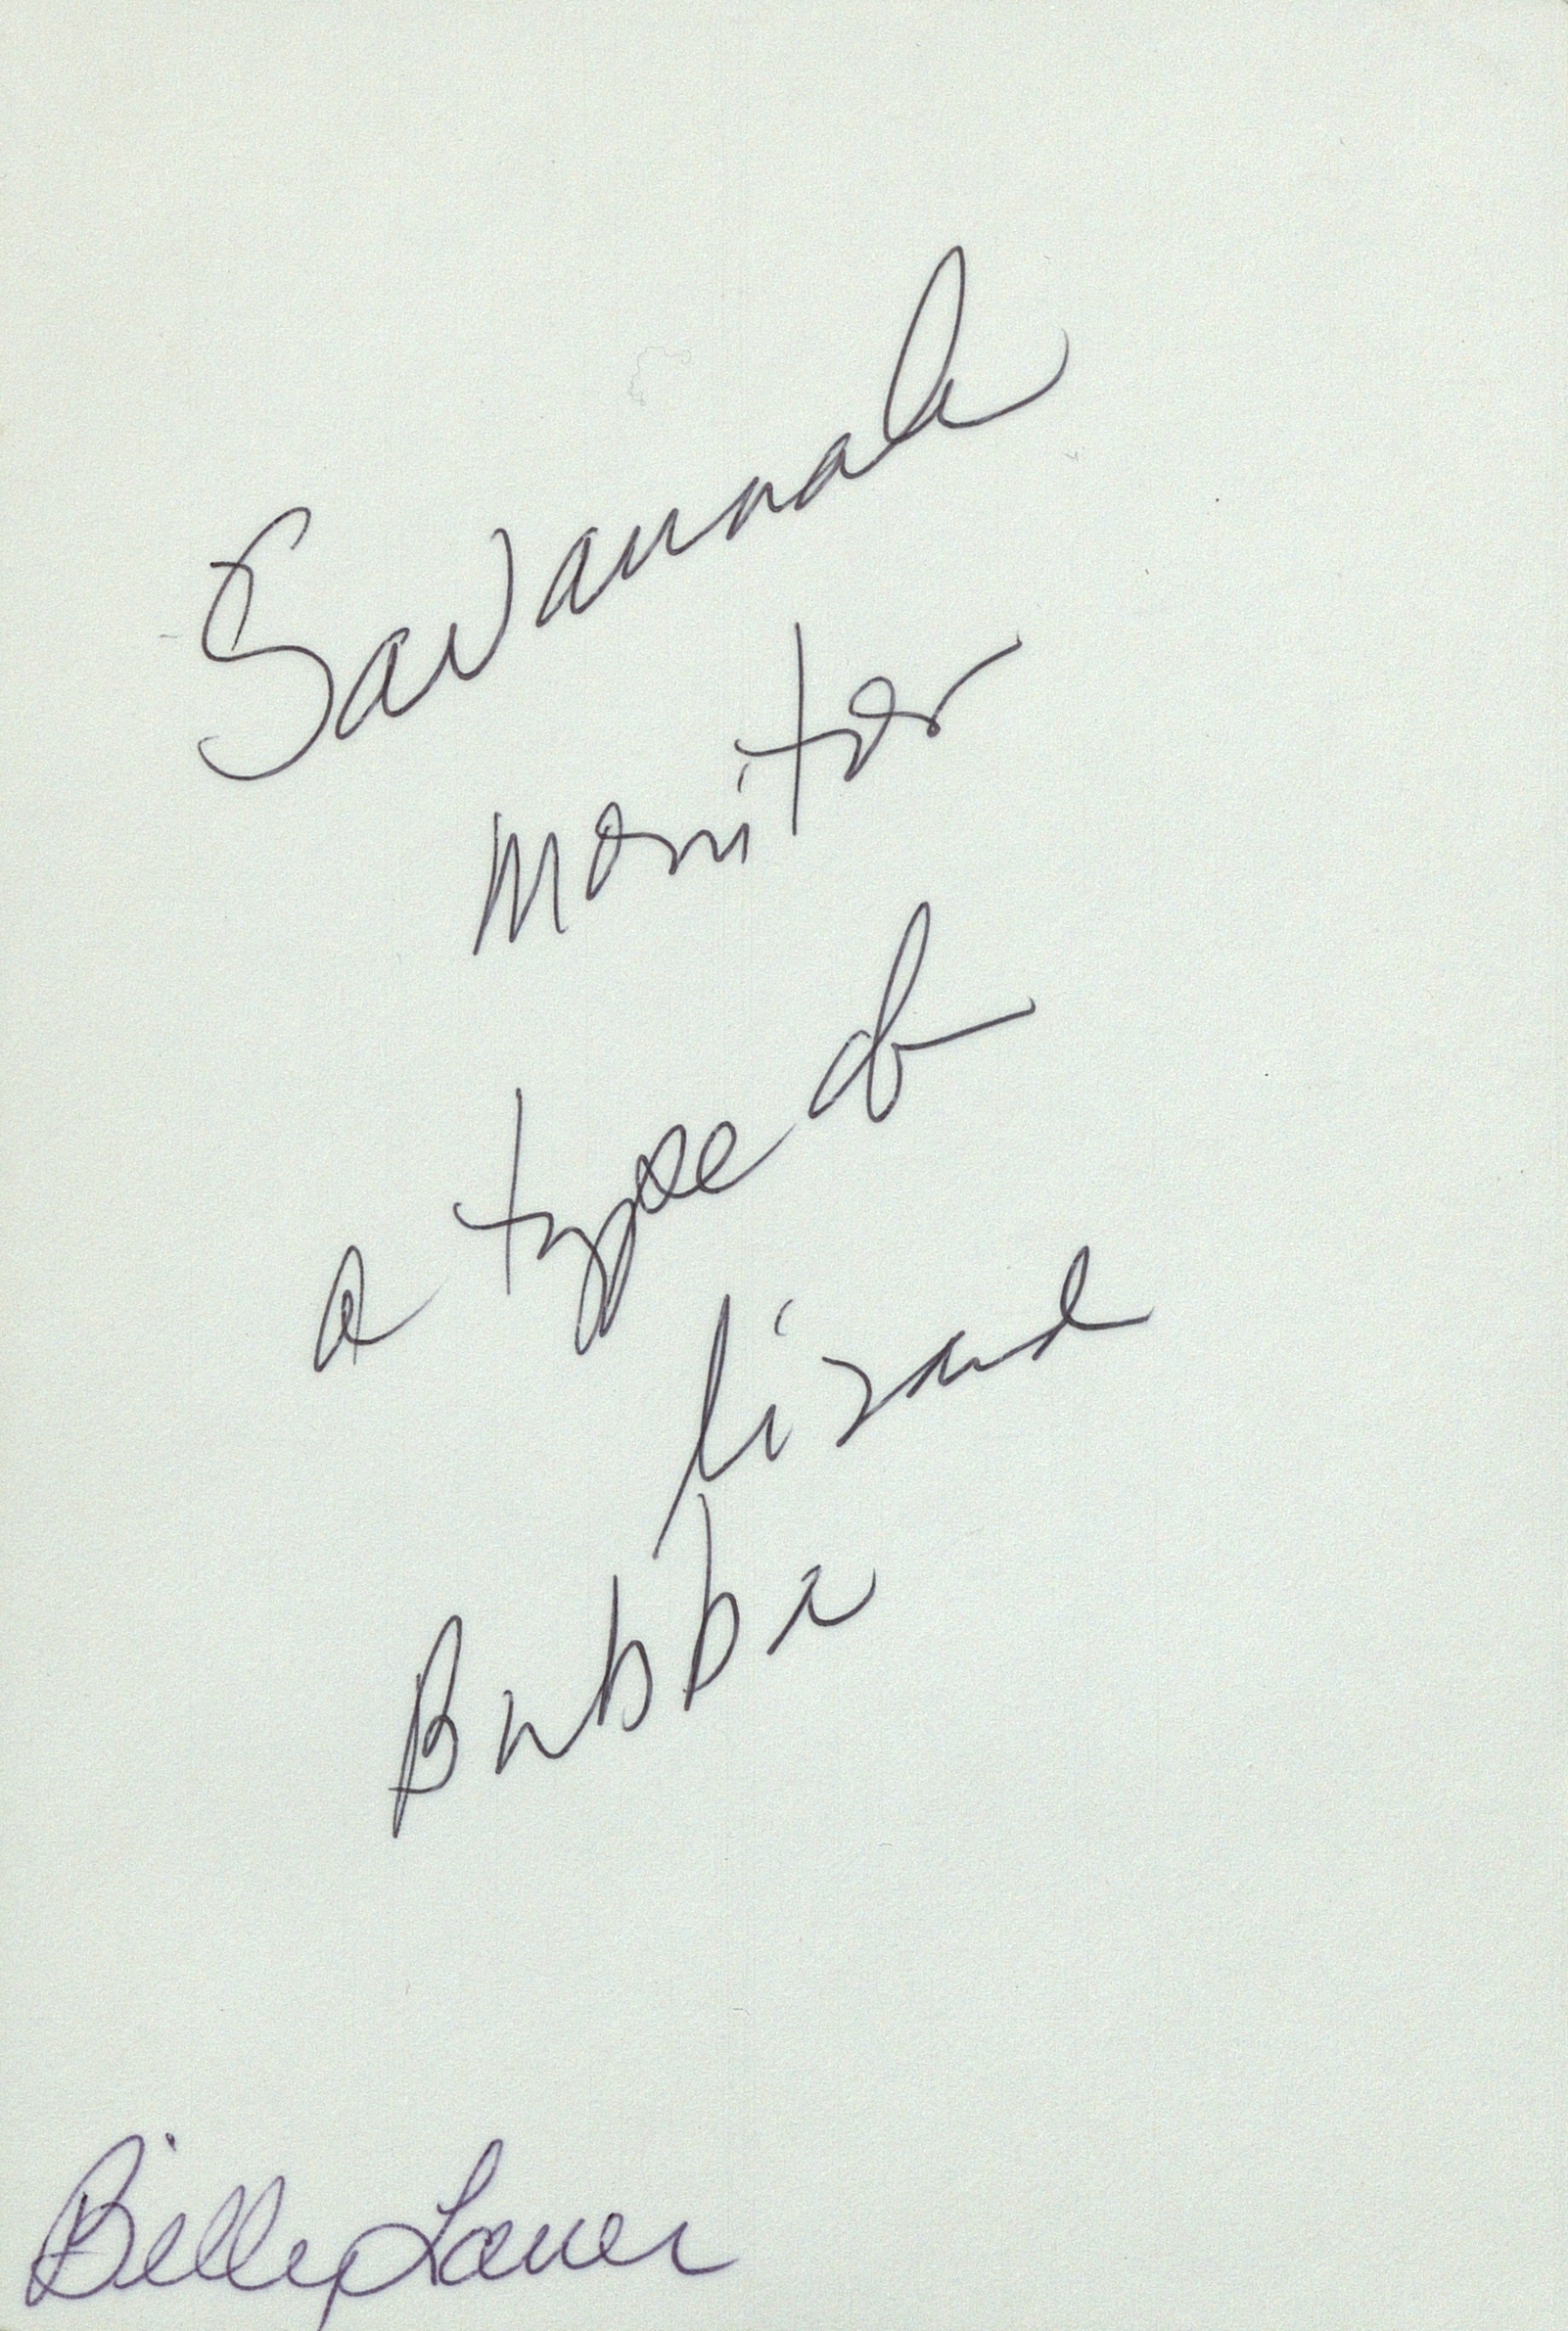 Savannah
Monitor
a type of
lizard
Bubba
Billy Lauer